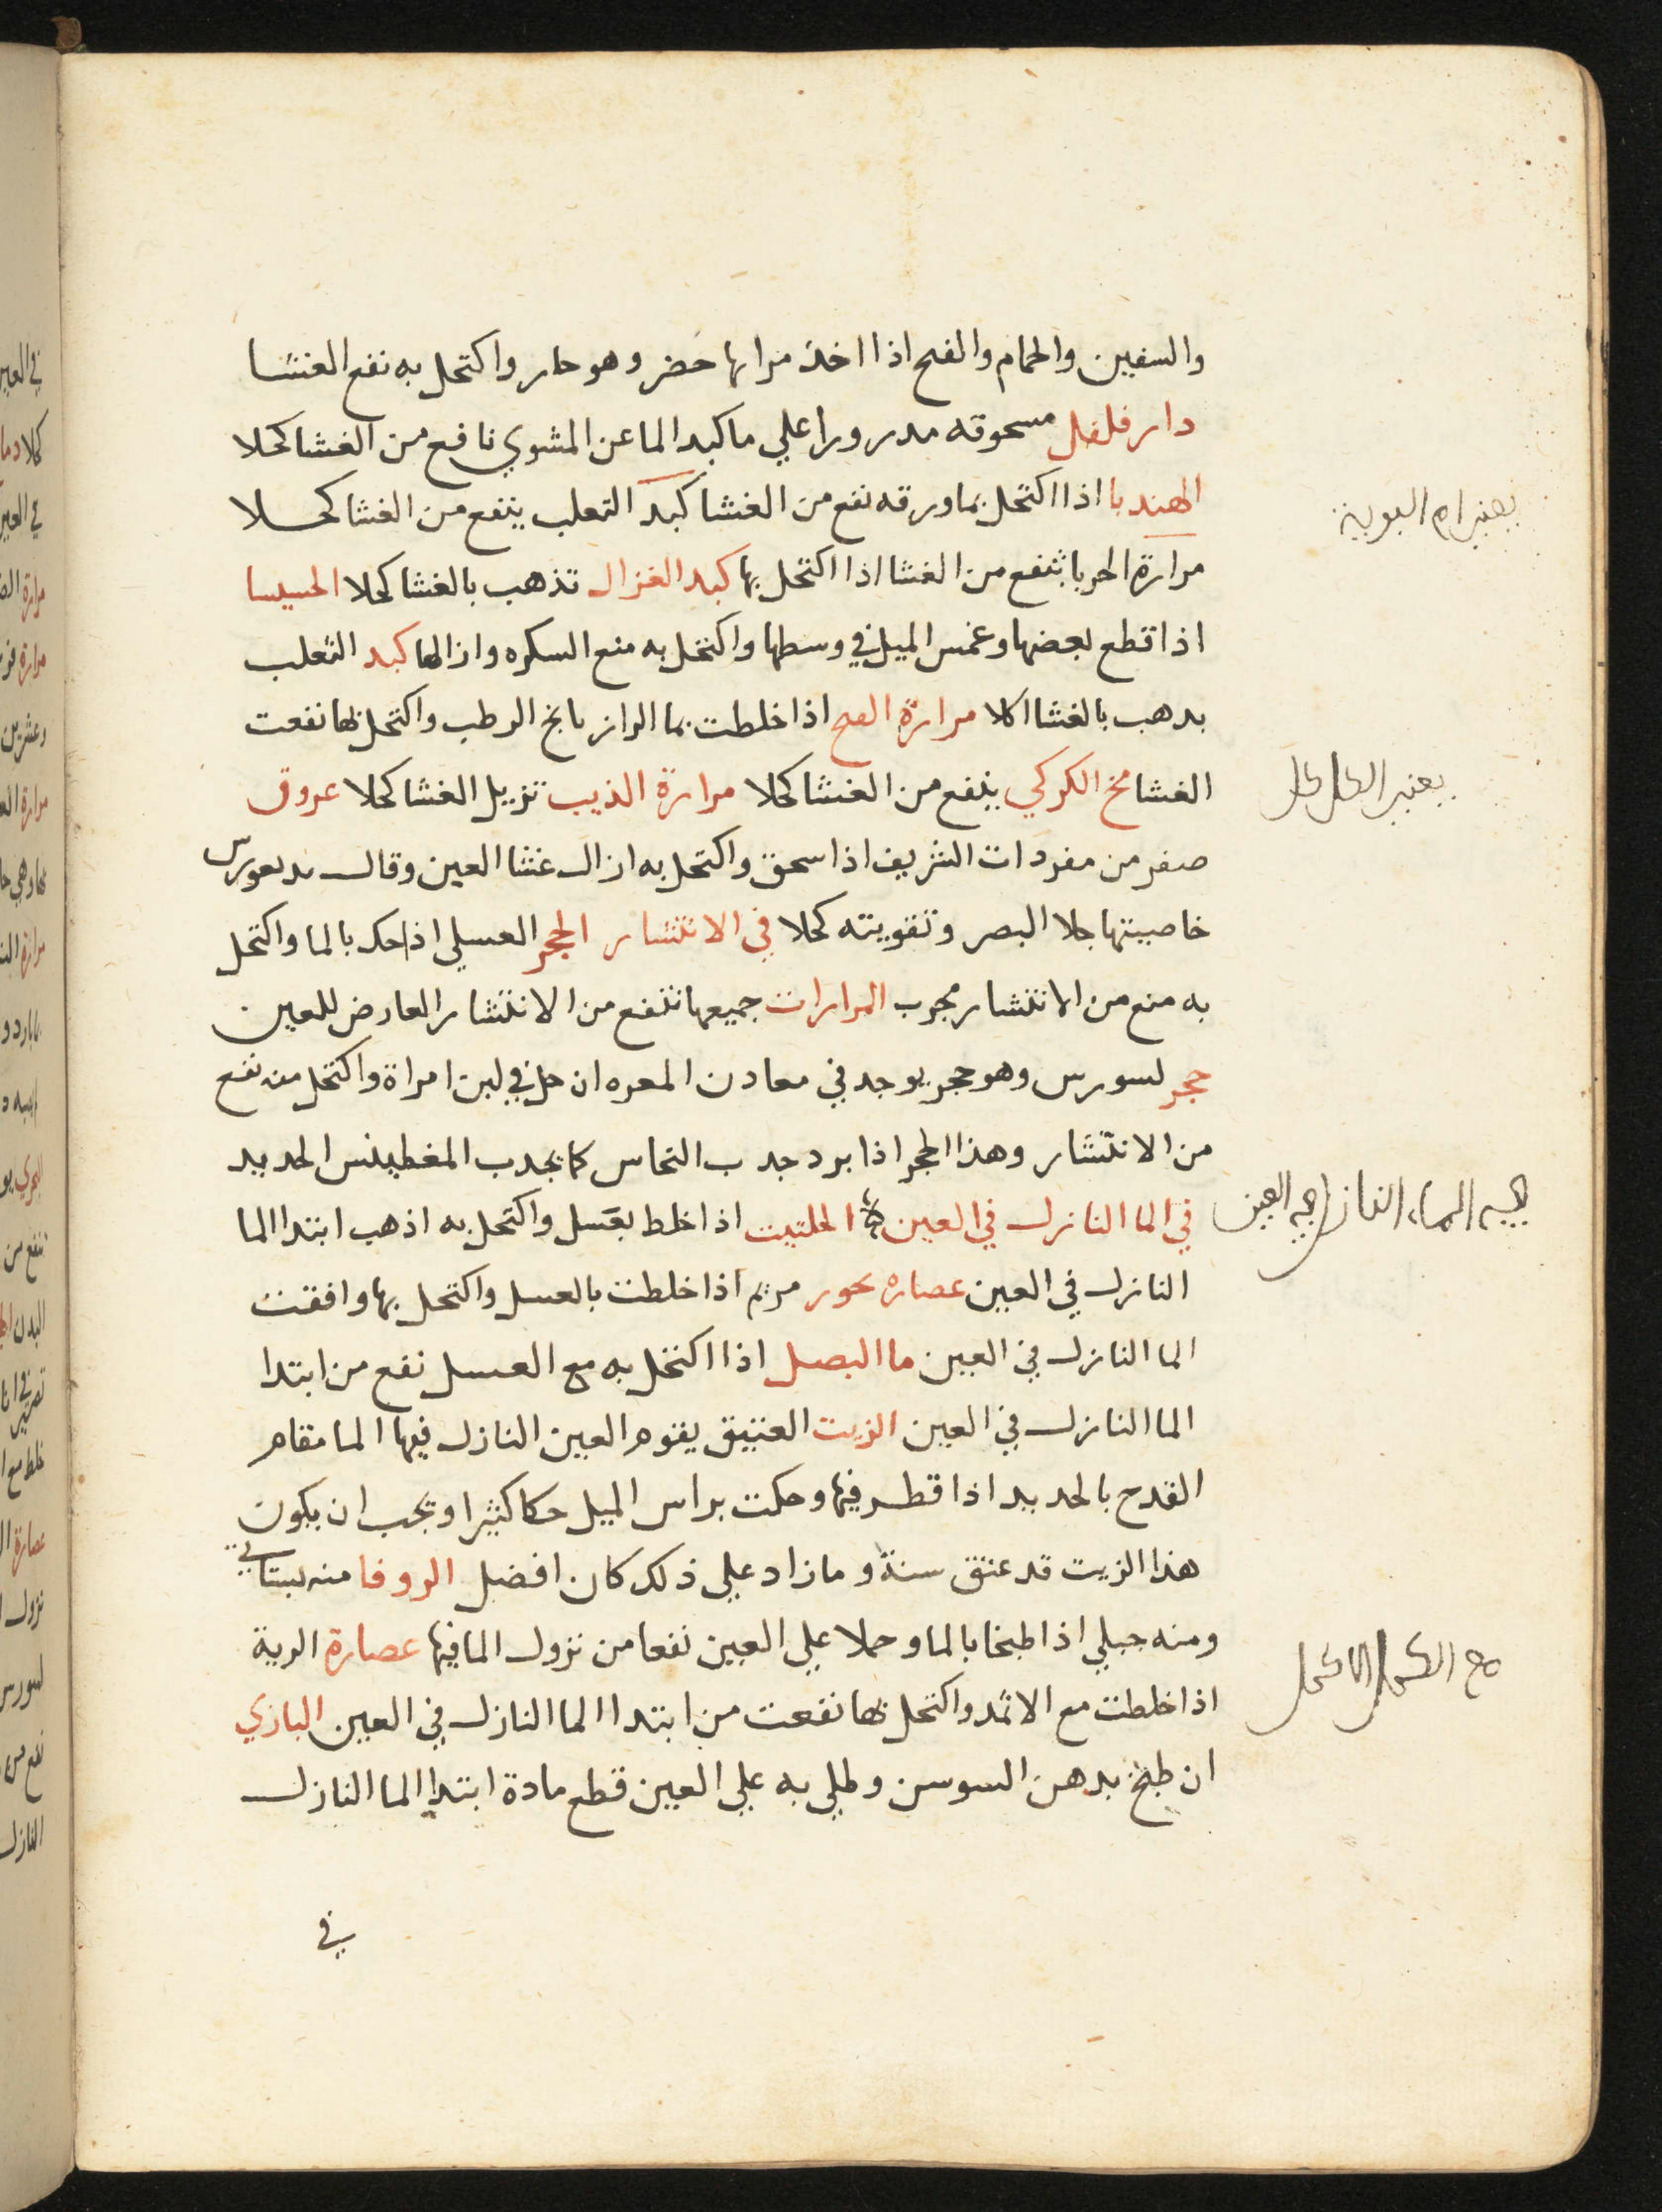 والسفين والحمام والقبج اذا اخذ مراتها خضر وهو حار واكتحل به نفع الغشا
دار فلفل مسحوقه مدرورا علي ما كبد الماعز المشوي نافع من الغشا كحلا
الهندبا اذا اكتحل بما ورقه نفع من الغشا كبد الثعلب ينفع من الغشا كحلا
مرارة الحربا تنفع من الغشا اذا اكتحل بها كبد الغزال تذهب بالغشا كحلا
اذا قطع بعضها وغمس الميل في وسطها واكتحل به منع السكره وازالها كبد الثعلب
يدهب بالغشا اكلا مرارة اذا خلطت بما الرازيانج الرطب واكتحل بها نفعت
الغشا مخ الكركي ينفع من الغشا كحلا مرارة الذيب تزيل الغشا كحلا عروق
صفر من مفردات الشريف اذا سحق واكتحل به ازال غشا العين وقال
خاصيتها جلا البصر وتقويته كحلا في الانتشار الحجر العسلي اذا حك بالما واكتحل
به منع من الانتشار مجرب المرارات جميعها تنفع من الانتشار العارض للعين
حجر لسورس وهو حجر يوجد في معادن المعره ان حل في لبن امراة واكتحل منه نفع
من الانتشار وهذا الحجر اذا برد جدب النحاس كما يجدب المغطيس الحديد
في الما النازل في العين الحلتيت اذا خلط بعسل واكتحل به اذهب ابتدا الما
النازل في العين عصاره بخور مريم اذا خلطت بالعسل واكتحل بها وافقت
الما النازل في العين ما البصل اذا اكتحل به مع العسل نفع من ابتدا
الما النازل في العين الزيت العتيق يقوم العين النازل فيها الما مقام
القدح بالحديد اذا قطر فيها وحكت براس الميل حكا كثيرا ويجب ان يكون
هذا الزيت قد عتق سنة وما زاد علي ذلك كان افضل الزوفا منه بستاني
ومنه جبلي اذا طبخا بالما وحملا علي العين نفعا من نزول الما فيها عصارة الرية
اذا خلطت مع الاثمد واكتحل بها نفعت من ابتدا الما النازل في العين البازي
ان طبخ بدهن السوسن وطلي به علي العين قطع مادة ابتدا الما النازل
في
الماء النازل العين